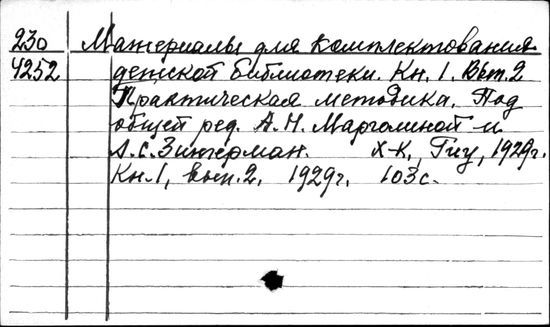 230 Материалы для комплектования
4252 детской библиотеки. Кн. 1. Вып. 2
Практическая методика. Под
общей ред. А.Н. Марголиной и
Л.С. Зингерман. Х-К, Гиу, 1929г.
Кн. 1, вып. 2. 1929г. 103с.